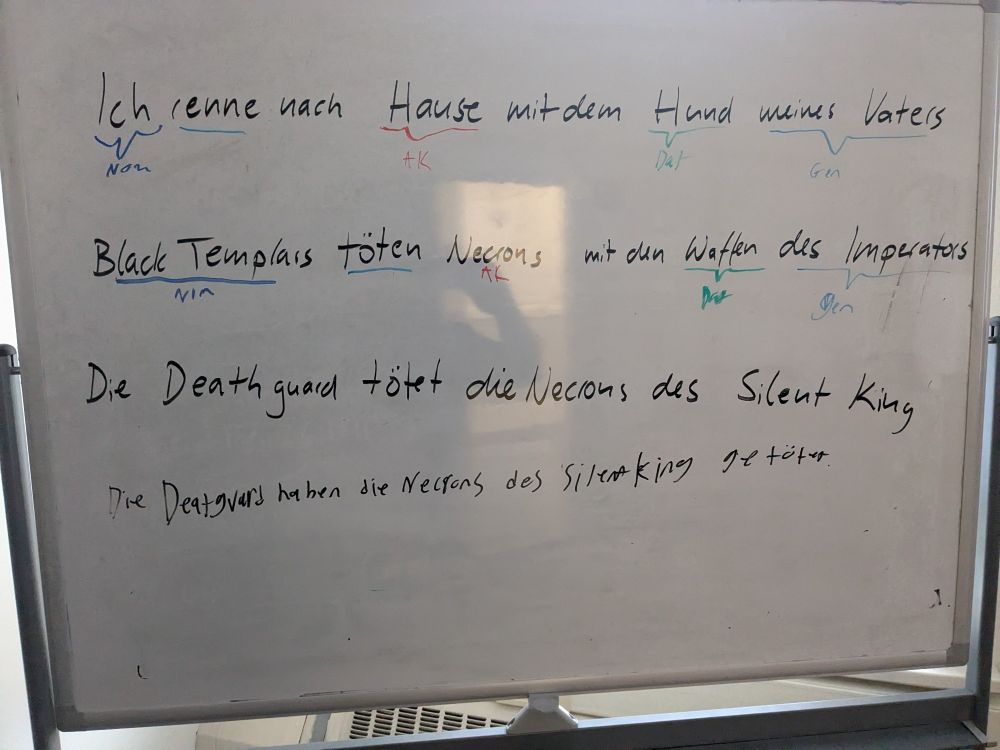 Ich renne nach Hause mit dem Hund meines Vaters
Nom AK Dat Gen
Black Templars töten Necrons mit den Waffen des Imperators
Nom AK Dat Gen
Die Deathguard tötet die Necrons des Silent King
Die Deatguard haben die Necrons des Silent King getötet.